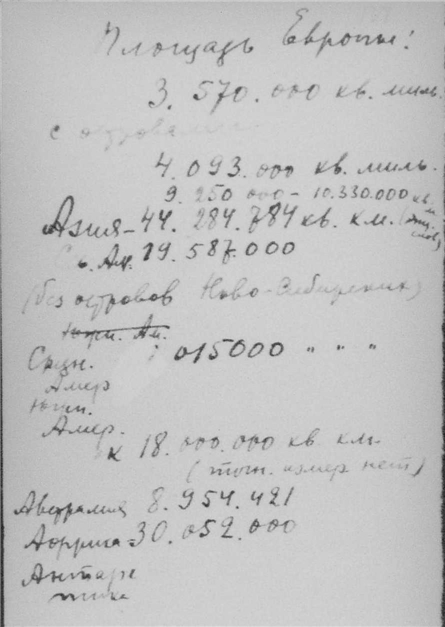 Площадь Европы:
3. 570. 000 кв. миль.
с островами
4. 093. 000 кв. миль.
9. 250 000 – 10.330.000 кв.
Азия – 44. 284. 784 кв. км.
Св. Ам. 19. 587. 000
(без островов Ново-Сибирских)
Южн. Ам.
Средн. 1 015000 " " "
Амер
Южн.
Амер.
к 18. 000. 000 кв км.
(точн. измер нет)
Австралия 8. 954. 421
Африка 30. 052. 000
Антарк
тика